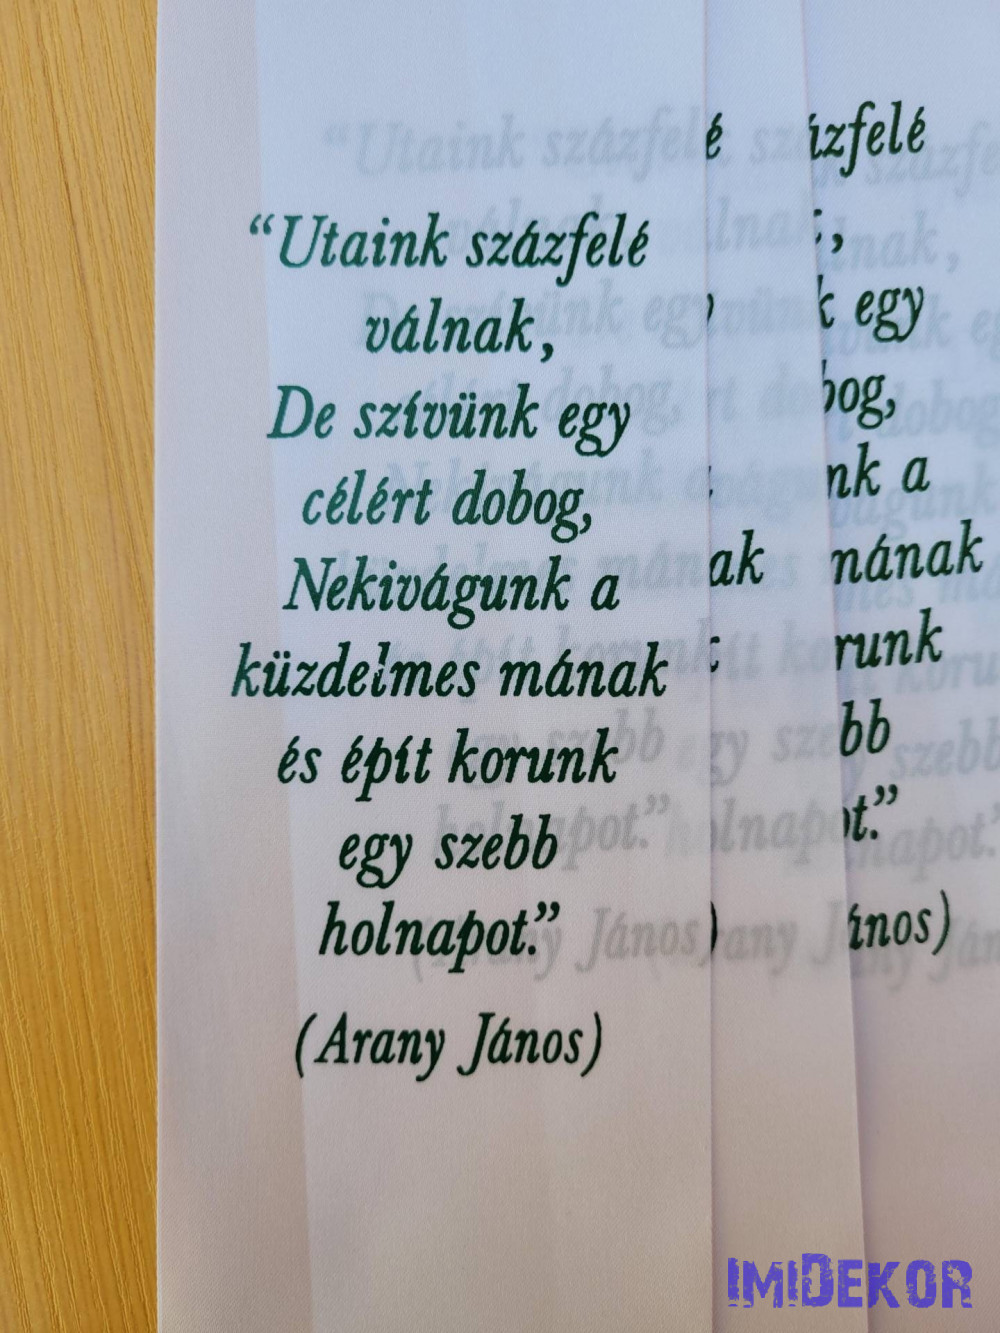 “Utaink százfelé
válnak,
De szívünk egy
célért dobog,
Nekivágunk a
küzdelmes mának
és épít korunk
egy szebb
holnapot.”
(Arany János)
é
ázfelé
,
k egy
bog,
nk a
ak
mának
runk
bb
ot.”
)
ános)
IMIDEKOR